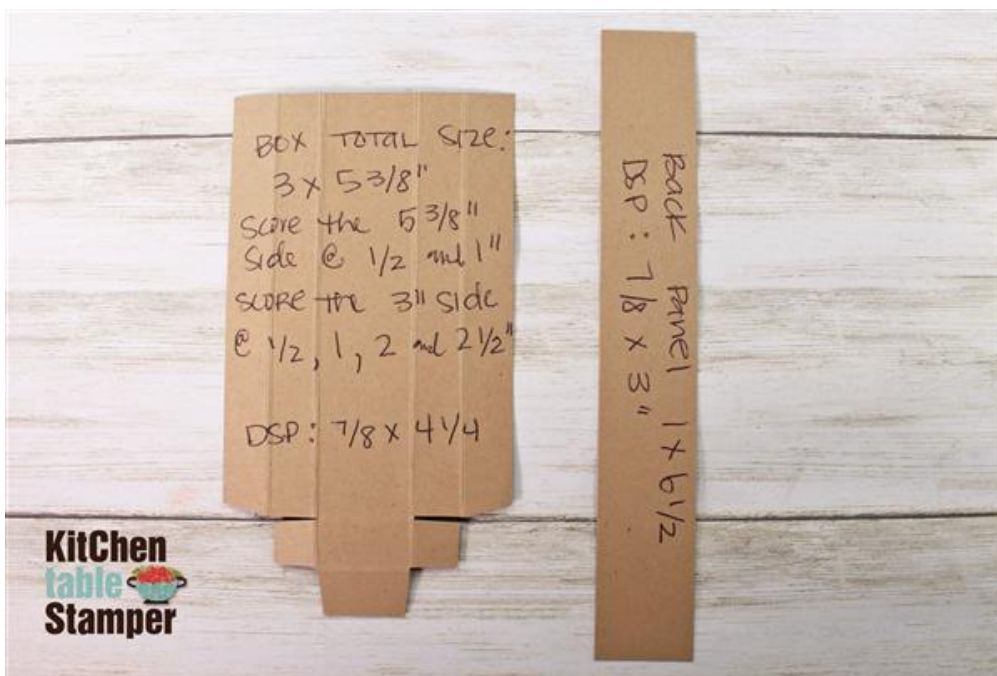 BOX TOTAL SIZE:
3 x 5 3/8"
score the 5 3/8"
side @ 1/2 and 1"
SCORE the 3" side
@ 1/2, 1, 2 and 2 1/2"
DSP: 7/8 x 4 1/4
Back Panel 1 x 6 1/2
DSP: 7/8 x 3"
KitChen
table
Stamper